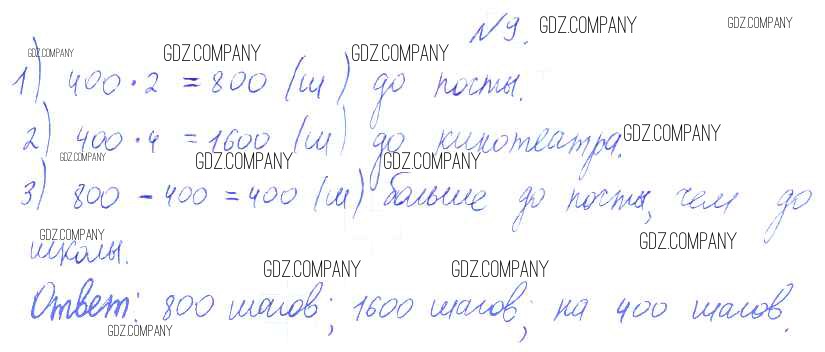 №9. GDZ.COMPANY GDZ.COMPANY
GDZ.COMPANY GDZ.COMPANY GDZ.COMPANY
1) 400 · 2 = 800 (ш) до почты.
2) 400 · 4 = 1600 (ш) до кинотеатра. GDZ.COMPANY
GDZ.COMPANY GDZ.COMPANY GDZ.COMPANY
3) 800 - 400 = 400 (ш) больше до почты, чем до
GDZ.COMPANY GDZ.COMPANY
школы.
GDZ.COMPANY GDZ.COMPANY
Ответ: 800 шагов; 1600 шагов; на 400 шагов.
GDZ.COMPANY